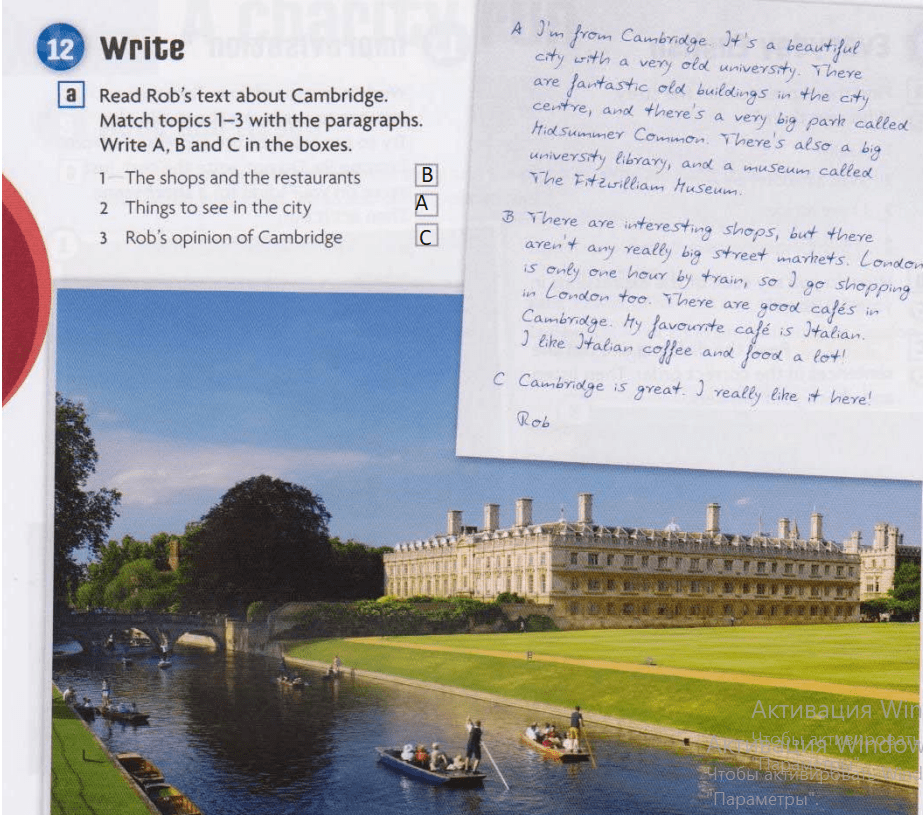 12 Write
a Read Rob's text about Cambridge.
Match topics 1–3 with the paragraphs.
Write A, B and C in the boxes.
1 The shops and the restaurants B
2 Things to see in the city A
3 Rob's opinion of Cambridge C
A I'm from Cambridge. It's a beautiful
city with a very old university. There
are fantastic old buildings in the city
centre, and there's a very big park called
Midsummer Common. There's also a big
university library, and a museum called
The Fitzwilliam Museum.
B There are interesting shops, but there
aren't any really big street markets. London
is only one hour by train, so I go shopping
in London too. There are good cafés in
Cambridge. My favourite café is Italian.
I like Italian coffee and food a lot!
C Cambridge is great. I really like it here!
Rob
Активация Win
Чтобы активировать
Активация Windows
Чтобы активировать
"Параметры".